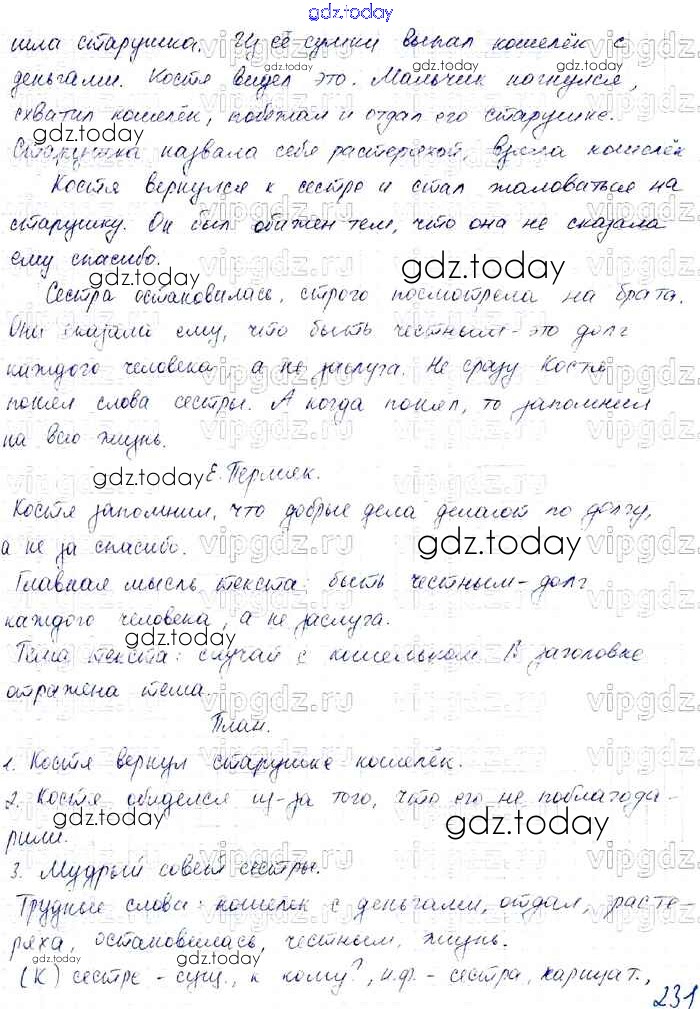 gdz.today
шла старушка. Из её сумки выпал кошелёк с
деньгами. Костя видел это. Мальчик нагнулся,
схватил кошелёк, побежал и отдал его старушке.
gdz.today
Старушка назвала себя растеряхой, взяла кошелёк
Костя вернулся к сестре и стал жаловаться на
старушку. Он был обижен тем, что она не сказала
ему спасибо.
gdz.today gdz.today
Сестра остановилась, строго посмотрела на брата.
Они сказали ему, что быть честным - это долг
каждого человека, а не заслуга. Не сразу Костя
понял слова сестры. А когда понял, то запомнил
на всю жизнь.
gdz.today
Е. Пермяк.
Костя запомнил, что добрые дела делают по долгу,
а не за спасибо.
gdz.today
Главная мысль текста: быть честным - долг
каждого человека, а не заслуга.
gdz.today
Тема текста: случай с кошельком. В заголовке
отражена тема.
План.
1. Костя вернул старушке кошелёк.
2. Костя обиделся из-за того, что его не поблагода-
рили.
gdz.today gdz.today
3. Мудрый совет сестры.
Трудные слова: кошелёк с деньгами, отдал, расте-
ряха, остановилась, честным, жизнь.
(К) сестре - сущ., к кому?, н.ф. - сестра, нарицат.,
231
vipgdz.ru